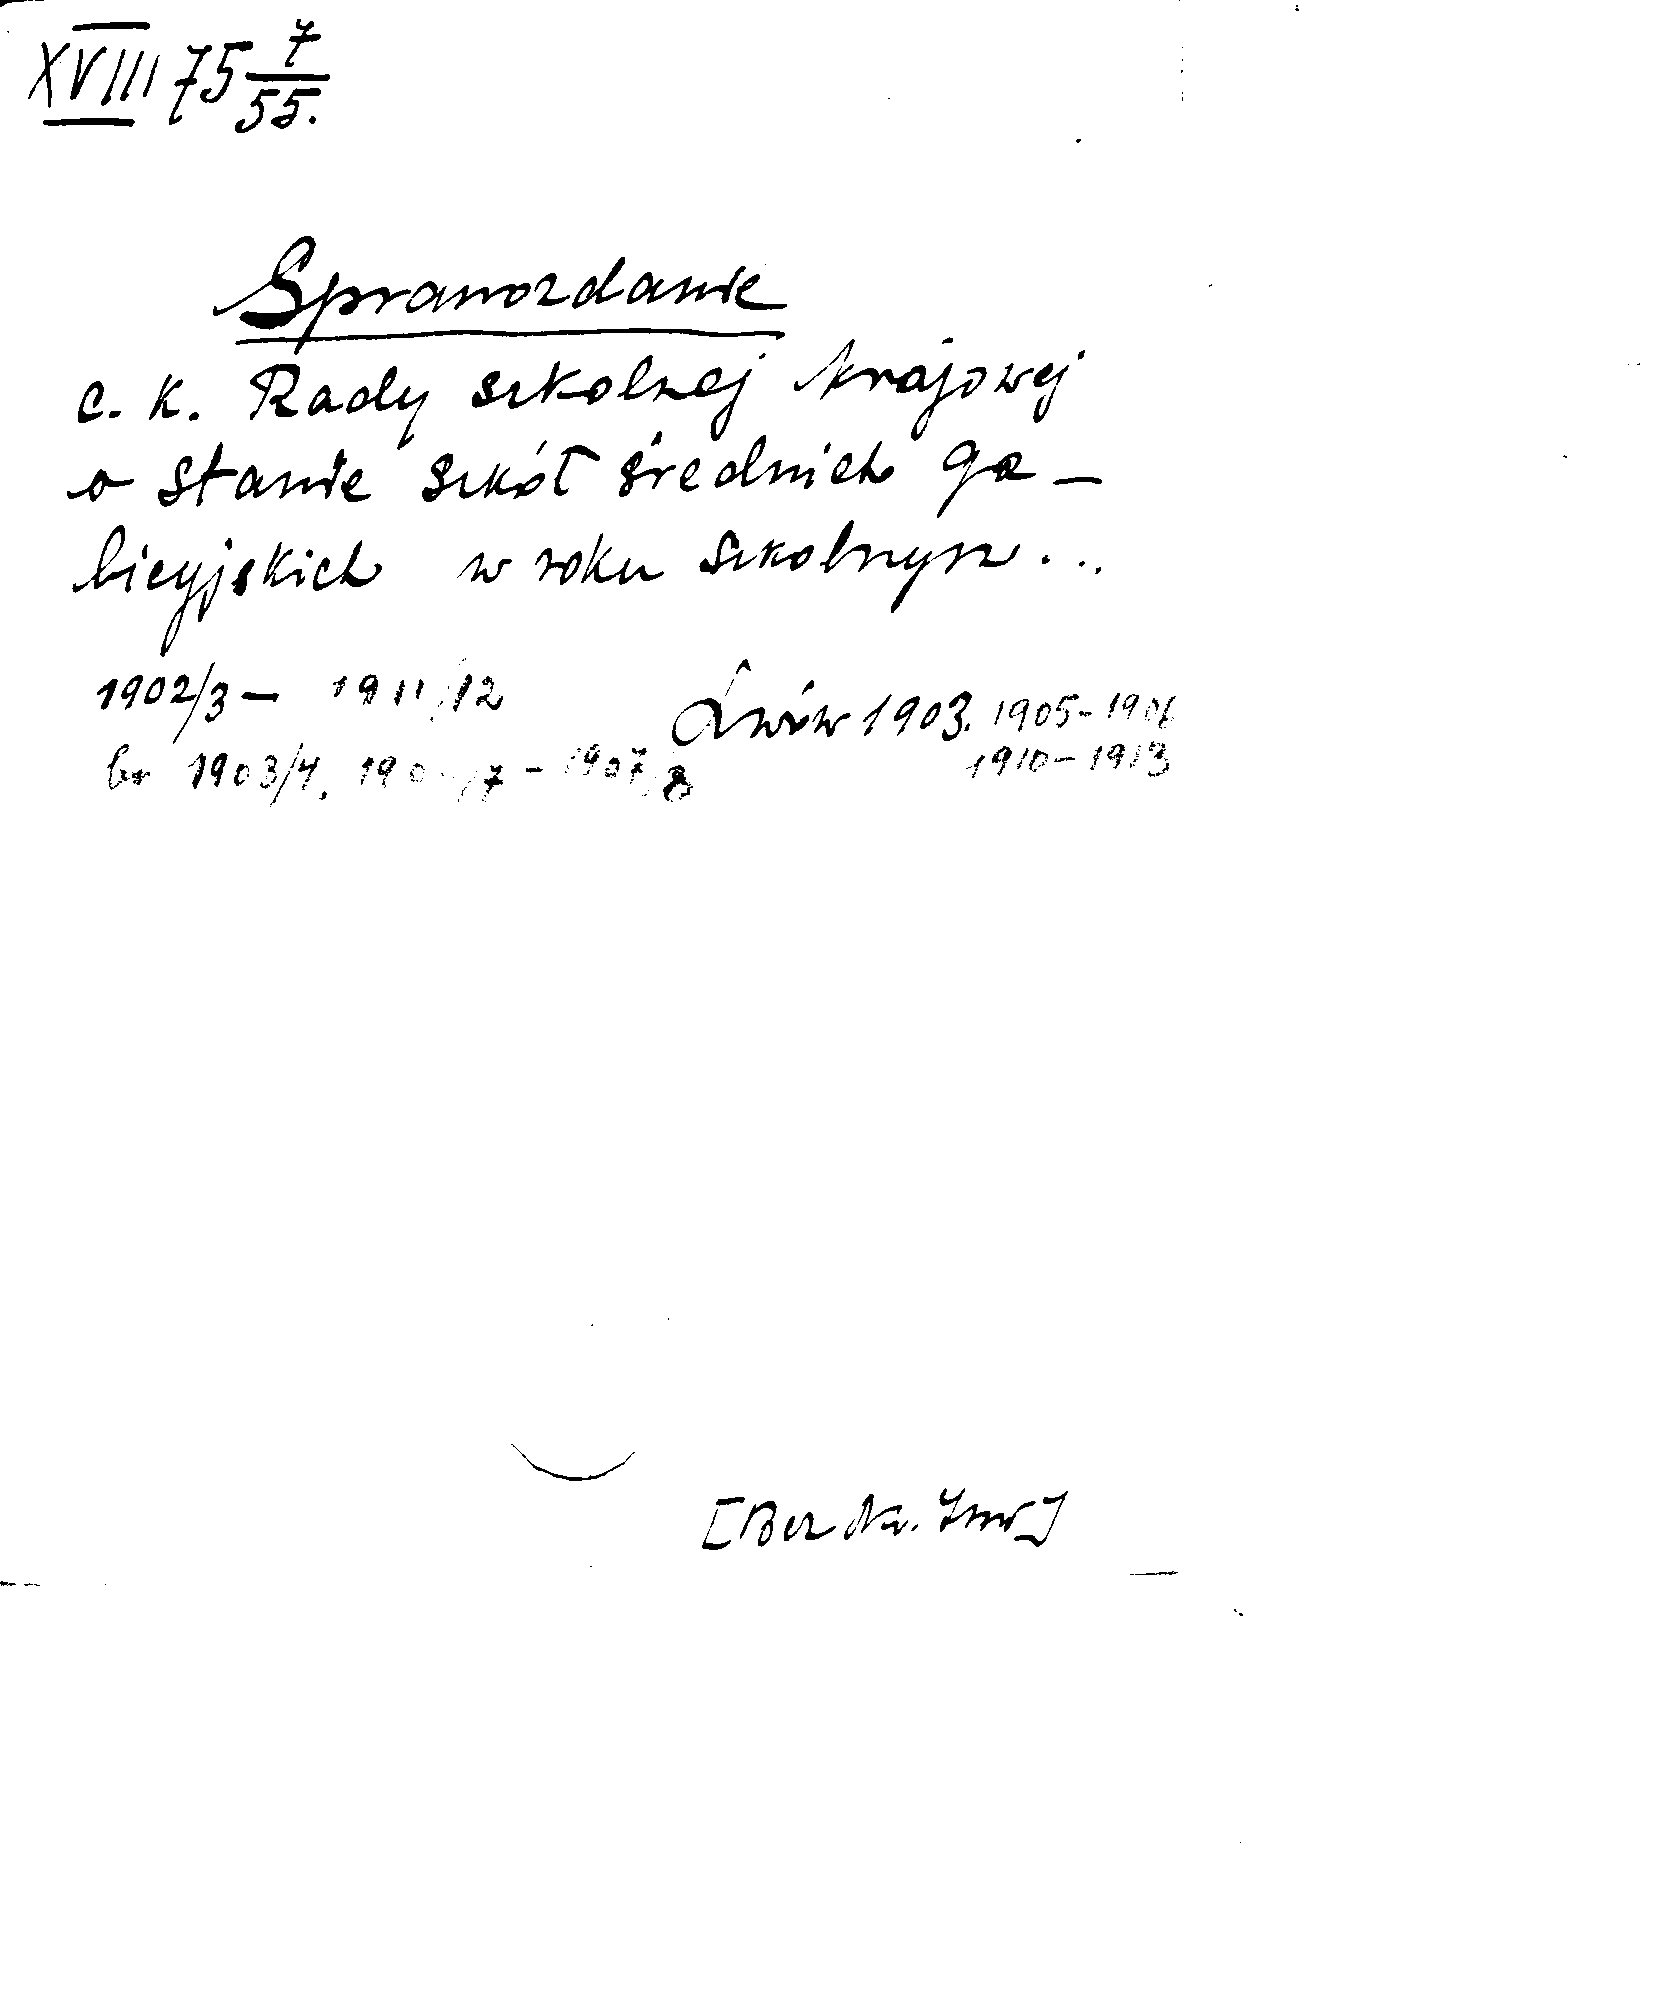 XVIII 75 7/55.
Sprawozdanie
c. k. Rady szkolnej krajowej
o stanie szkół średnich ga-
licyjskich w roku szkolnym...
1902/3 - 1911/12 Lwów 1903. 1905-1906
br 1903/4, 190 /7 - 1907/8 1910-1913
[Bez